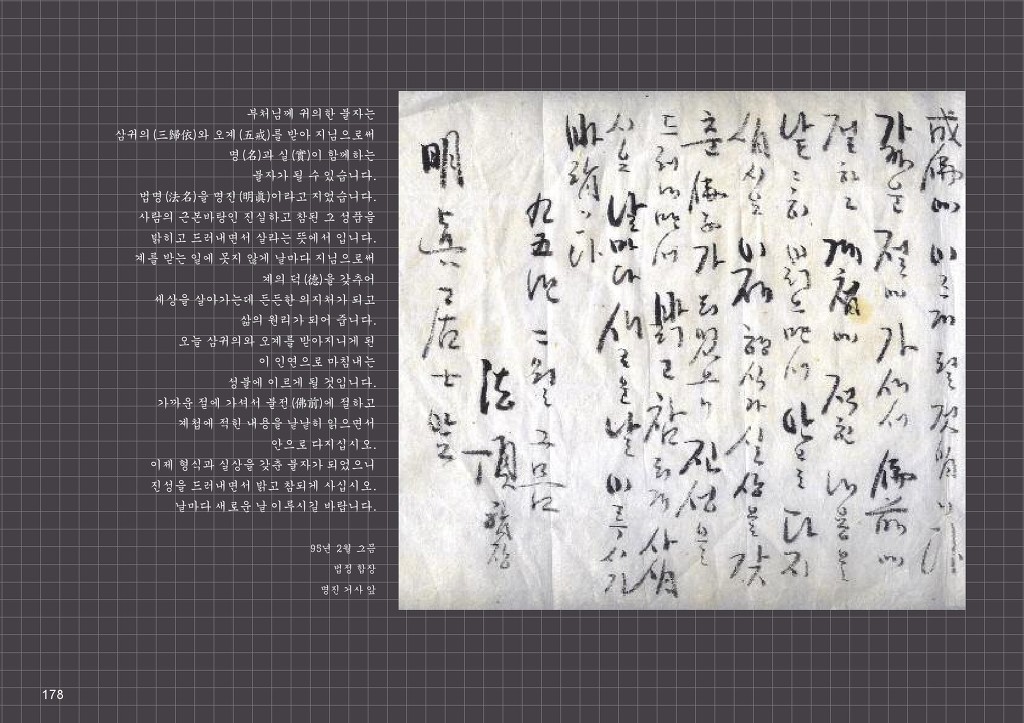 부처님께 귀의한 불자는
삼귀의(三歸依)와 오계(五戒)를 받아 지님으로써
명(名)과 실(實)이 함께하는
불자가 될 수 있습니다.
법명(法名)을 명진(明眞)이라고 지었습니다.
사람의 근본바탕인 진실하고 참된 그 성품을
밝히고 드러내면서 살라는 뜻에서 입니다.
계를 받는 일에 못지 않게 날마다 지님으로써
계의 덕(德)을 갖추어
세상을 살아가는데 든든한 의지처가 되고
삶의 원리가 되어 줍니다.
오늘 삼귀의와 오계를 받아지니게 된
이 인연으로 마침내는
성불에 이르게 될 것입니다.
가까운 절에 가셔서 불전(佛前)에 절하고
계첩에 적힌 내용을 낱낱이 읽으면서
안으로 다지십시오.
이제 형식과 실상을 갖춘 불자가 되었으니
진성을 드러내면서 밝고 참되게 사십시오.
날마다 새로운 날 이루시길 바랍니다.
95년 2월 그믐
법정 합장
명진 거사 앞
成佛에 이르게 될 것입니다
가까운 절에 가셔서 佛前에
절하고 계첩에 적힌 내용을
낱낱이 읽으면서 안으로 다지
십시오 이제 형식과 실상을 갖
춘 佛子가 되었으니 진성을
드러내면서 밝고 참되게 사십
시오 날마다 새로운 날 이루시길
바랍니다
九五年 二월 그믐
法頂 합장
明眞居士 앞
178